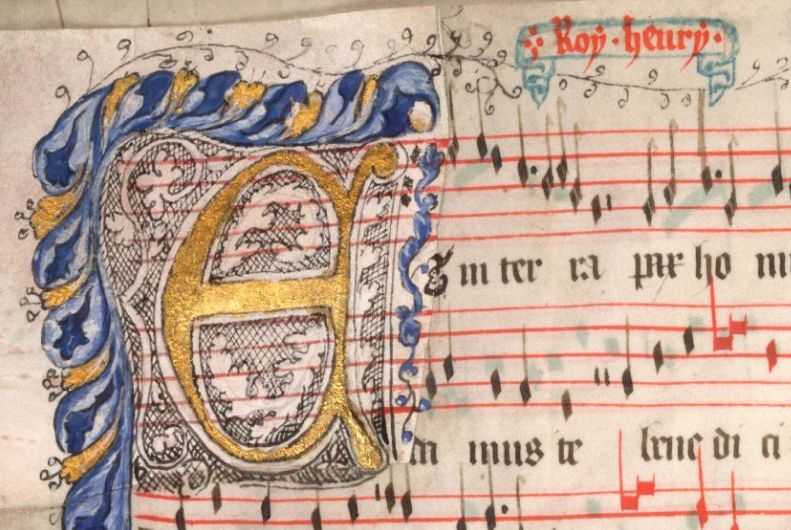 Roy·henry·
Et in ter ra pax ho mi
da mus te bene di ci